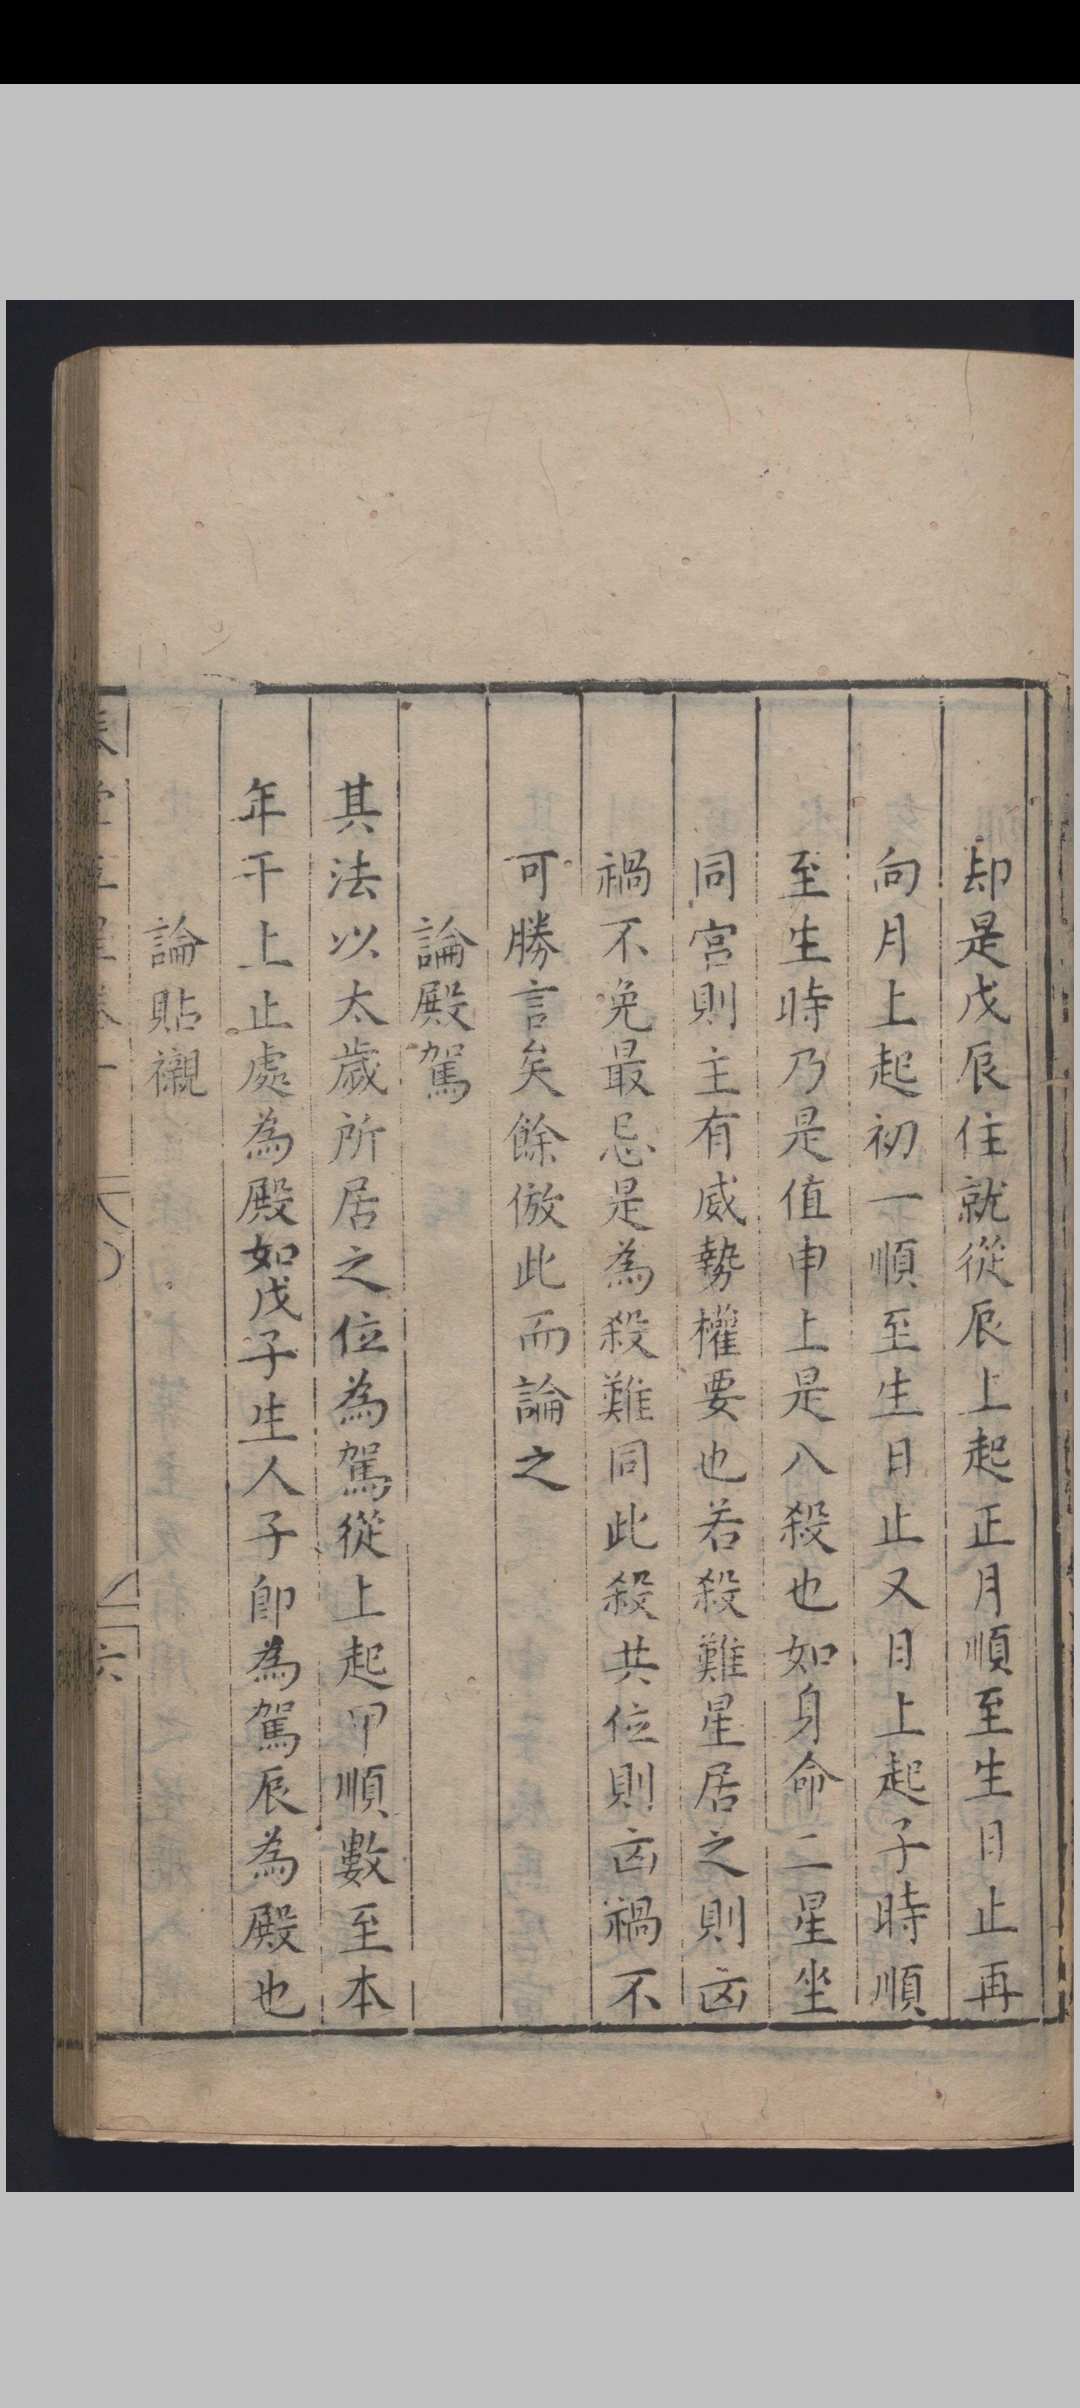 却是戊辰住就從辰上起正月順至生日止再
向月上起初一順至生日止又日上起子時順
至生時乃是值申上是八殺也如身命二星坐
同宮則主有威勢權要也若殺難星居之則㐫
禍不免最忌是為殺難同此殺共位則㐫禍不
可勝言矣餘倣此而論之
論殿駕
其法以太歲所居之位為駕從上起甲順數至本
年干上止處為殿如戊子生人子即為駕辰為殿也
論貼襯
六